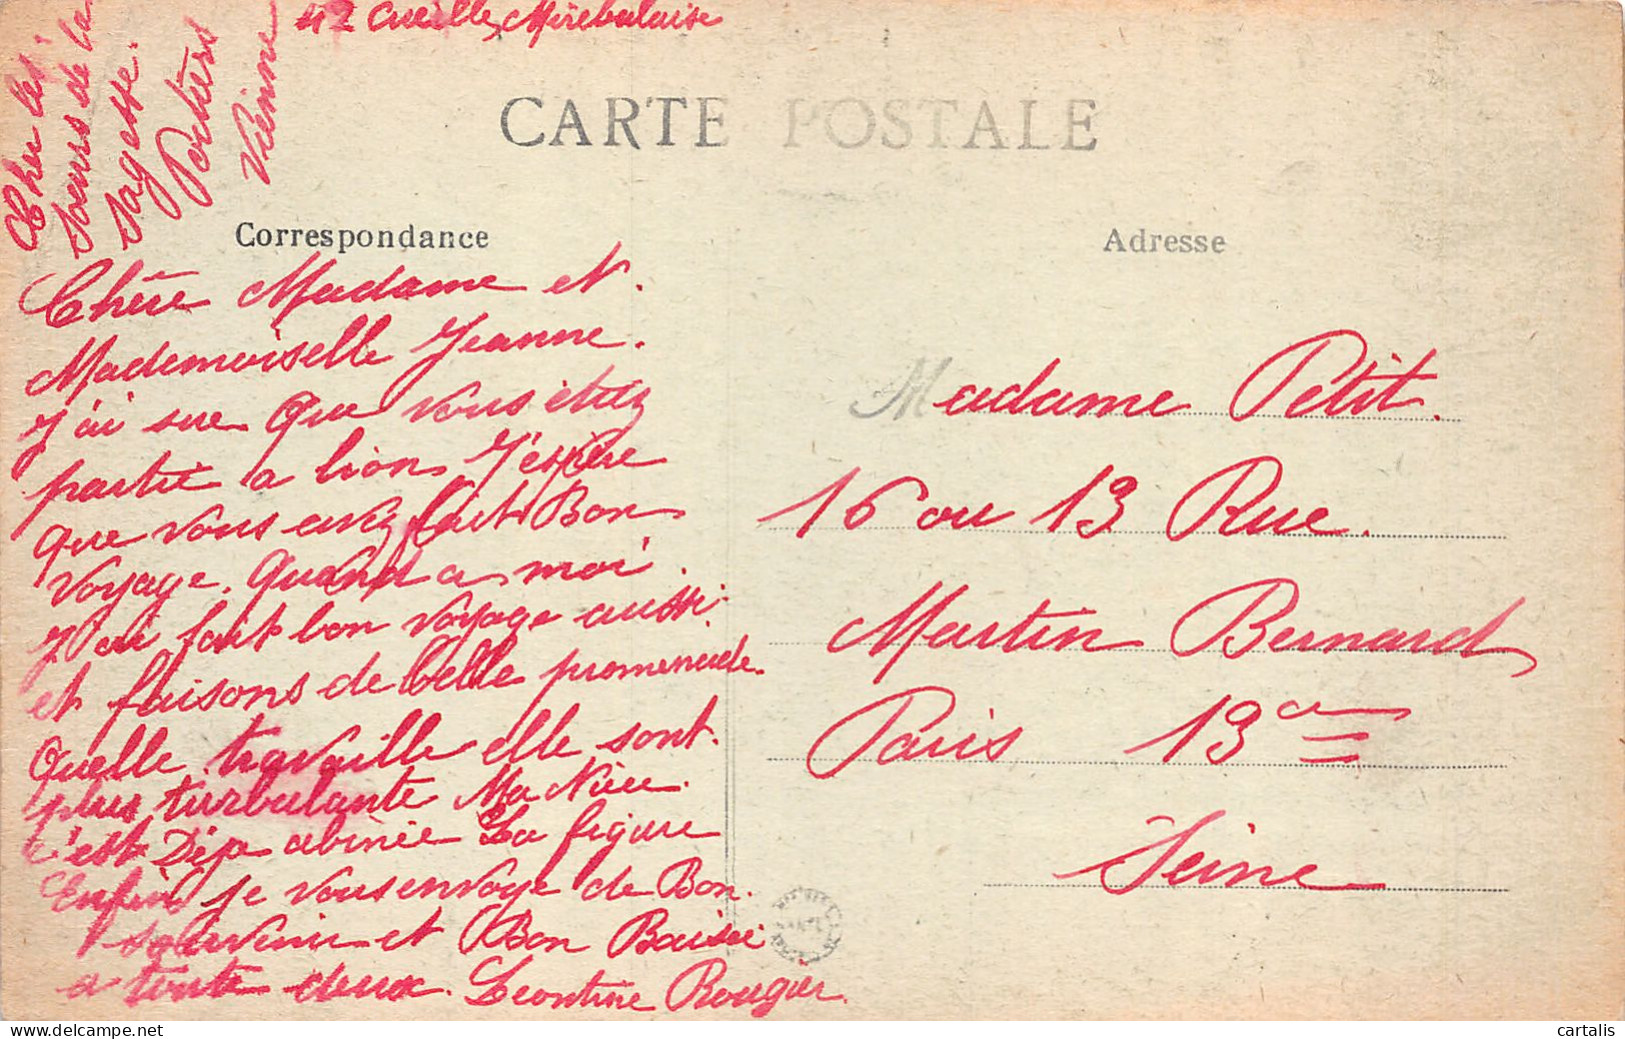 42 Cueille Mirebalaise
Cher les
Soeurs de la
Sagesse.
Poitiers
Vienne
CARTE POSTALE
Correspondance
Adresse
Chère Madame et.
Mademoiselle Jeanne.
J'ai sue que vous étiez
partie a lion J'espère
que vous avez fait Bon
voyage. Quand a moi.
J'ai fait bon voyage aussi.
et faisons de belle promenade.
Quelle travaille elle sont.
plus turbulante Ma Nièce.
c'est Déja abimée La figure
Enfin je vous envoye de Bon.
souvenir et Bon Baiser
a toute deux. Leontine Rougier.
Madame Petit.
16 ou 13 Rue.
Martin Bernard
Paris 13e
Seine
cartalis